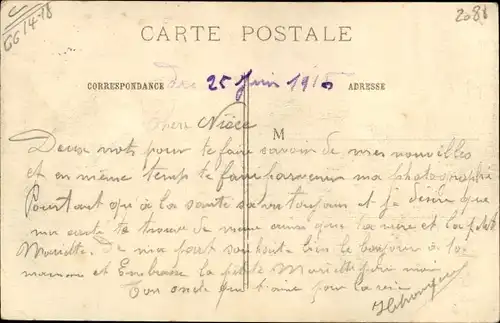 GG 14-18
208
CARTE POSTALE
CORRESPONDANCE
ADRESSE
25 Juin 1916
Chère Nièce
M
Deux mots pour te faire savoir de mes nouvelles
et en même temps te faire parvenir ma photographie
Pourtant que à la santé sa va toujours et je désire que
ma carte te trouve de même ainsi que ta mère et la petite
Mariette. De ma part souhaite bien le bonjour à ta
maman et Embrasse la petite Mariette pour moi
Ton oncle qui t'aime pour la vie